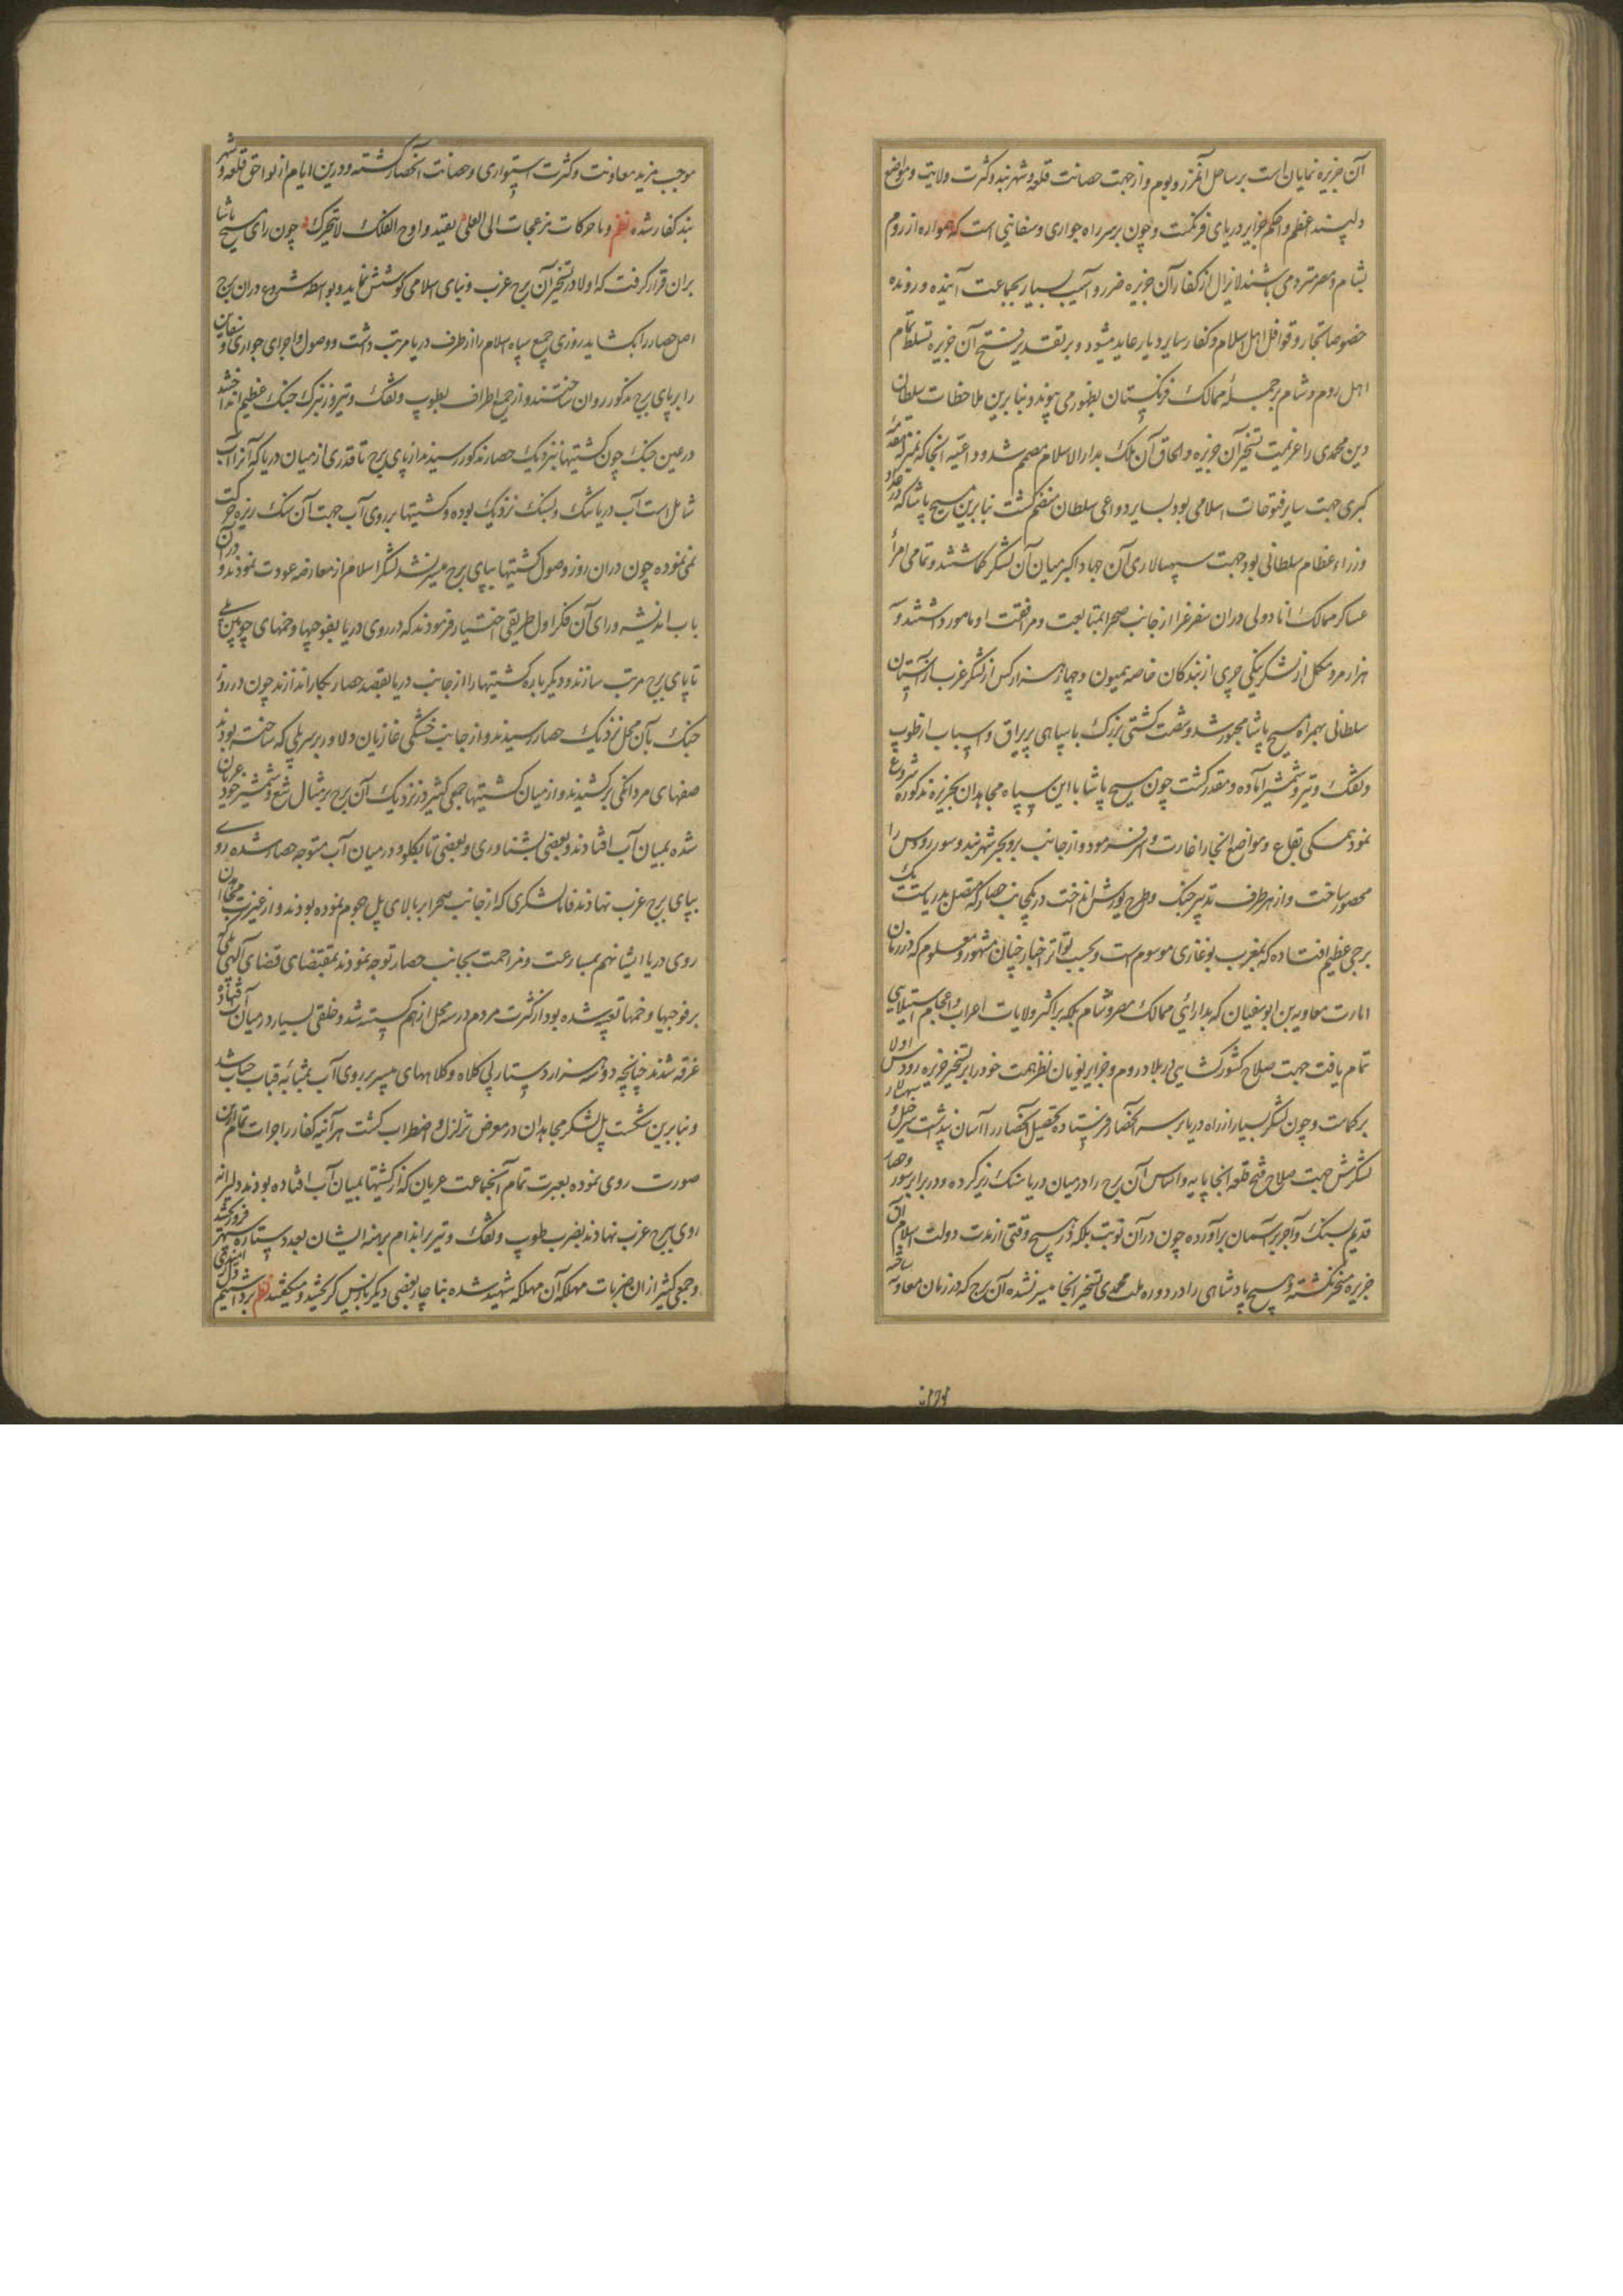 آن جزیره نمایان است بر ساحل آنمرز و بوم و از جهت حصانت قلعه و شهر بند و کثرت ولایت و مواضع
دلپسند اعظم و احکم جزایر دریای فرنکست و چون بر سر راه جواری و سفاینی است که همواره از روم
بشام و مصر متردد می باشند لایزال از کفار آن جزیره ضرر و آسیب بسیار بجماعت آینده و رونده
خصوصا تجار و قوافل اهل اسلام و کفار سایر دیار عاید میشود و بر تقدیر فتح آن جزیره تسلط تمام
اهل روم و شام بر جمله ممالک فرنکستان بظهور می پیوندد بنا برین ملاحظات سلطان
دین محمدی را عزیمت تسخیر آن جزیره و الحاق آن ملک بدار الاسلام مصمم شد و داعیه آنجا که نیز مقدمه
کبری جهت سایر فتوحات اسلامی بود بسایر دواعی سلطان منضم کشت بنا برین مسیح پاشا که در عداد
وزراء عظام سلطانی بود جهت سپهسالاری آن جهاد اکبر میان آن لشکر کماشتند و تمامی امرأ
عساکر ممالک اناد ولی دران سفر غزا از جانب صحرا بمتابعت و مرافقت او مامور داشتند و
هزار مرد مکمل از لشکر ینکی چری از بندکان خاصه همیون و چهار هزار کس از لشکر عزب از آستان
سلطانی بهمراه مسیح پاشا مجبور شد و شصت کشتی بزرک با سپاهی پر یراق و اسباب از طوب
و تفنک و تیر و شمشیر آماده و مقدر کشت چون مسیح پاشا با این سپاه مجاهدان بجزیره مذکوره شروع
نمود همکی بقاع و مواضع آنجا را غارت و اسر فرمود و از جانب بر و بحر شهر بند و سور رودس را
محصور ساخت و از هر طرف تدبیر جنک و طرح یورش انداخت در یکجانب حصار که متصل بدریاست یک
برجی عظیم افتاده که بمغرب بوغازی موسوم است و بحسب تواتر اخبار چنان مشهور و معلوم که در زمان
امارت معاویه بن ابو سفیان که بدارائی ممالک مصر و شام بلکه بر اکثر ولایات اعراب و اعجام استیلای
تمام یافت جهت صلاح کشورکشایی در بلاد روم و جزایر یونان نظر همت خود را بر تسخیر جزیره رودس اولا
بر کماشت و چون لشکر بسیار از راه دریا بر سر آنحصار فرستاده تحصیل آنحصار را آسان نپنداشت سرخیل و سپهدار
لشکرش جهت صلاح فتح قلعه آنجا پایه و اساس آن برج را در میان دریا سنک ریز کرده و در برابر سور و حصار
قدیم بسنک و آجر بر آسمان بر آورده چون در آن نوبت بلکه در هیچ وقتی از مدت دولت اسلام آن
جزیره مسخر نکشته و هیچ پادشاهی را در دوره ملت محمدی تسخیر آنجا میسر نشده آن برج که در زمان معاویه ساخته
موجب مزید معاونت و کثرت استواری و حصانت آنحصار کشته و درین ایام از لواحق قلعه و شهر
بند کفار شده نظم و ما حرکات مزعجات الی العلی بقید و اوج الفلک لا یتحرک چون رای مسیح پاشا
بران قرار کرفت که اولا در تسخیر آن برج عرب و بنای اسلامی کوشش نماید و بواسطه شروع دران برج
اصل حصار را بکشاید روزی جمیع سپاه اسلام را از طرف دریا مرتب داشت و وصول و اجرای جواری و سفاین
را بر پای برج مذکور روان ساختند و از جمیع اطراف بطوب و تفنک و تیر و زنبرک جنک عظیم انداختند
در عین جنک چون کشتیها بنزدیک حصار مذکور رسیدند از پای برج تا قدری از میان دریا که آنرا آب
شامل است آب دریا تنک و بسنک نزدیک بوده و کشتیها بر روی آب جهت آن سنک ریزه حرکت
نمی نموده چون دران روز وصول کشتیها بپای برج میسر نشد لشکر اسلام از معارضه عودت نمودند و در آن
باب اندیشه ورای آن فکر اول طریقی اختیار فرمودند که در روی دریا بفوجیها و خمهای چوبین پلی
تا پای برج مرتب سازند و دیکر باره کشتیها را از جانب دریا بقصد حصار بکار اندازند چون در روز
جنک بآن محل نزدیک حصار رسیدند و از جانب خشکی غازیان دلاور بر سر پلی که ساخته بودند
صفهای مردانکی بر کشیدند و از میان کشتیها جمعی کثیر در نزدیک آن برج بر مثال شع و شمشیر خود عریان
شده بمیان آب افتادند و بعضی بشناوری و بعضی تا بکلو در میان آب متوجه حصار شده روی
بپای برج عرب نهادند فاما لشکری که از جانب صحرا بر بالای پل هجوم نموده بودند و از غیرت مجاهدان
روی دریا ایشان هم بمسارعت و مزاحمت بجانب حصار توجه نمودند بمقتضای قضای آلهی پلی که
بر فوجیها و خمها تعبیه شده بود از کثرت مردم در سه محل از هم کسسته شد و خلقی بسیار در میان آب افتاده
غرقه شدند چنانچه دو سه هزار دستار پی کلاه و کلاههای میسر بر روی آب بمثابه قباب حباب شد
و بنا برین شکست پل لشکر مجاهدان در معرض تزلزل و اضطراب کشت هر آینه کفار را جرات تمام از آن
صورت روی نموده بعبرت تمام آنجماعت عریان که از کشتیها بمیان آب افتاده بودند دلیرانه
روی ببرج عرب نهادند بضرب طوب و تفنک و تیر بر اندام برهنه ایشان بعدد ستاره سپهر فرو رکشد
و جمعی کثیر از ان ضربات مهلکه آن مهلکه شهید شده بناچار بعضی دیکر باز پس کریختند و میکفتند نظم برداشتیم دل